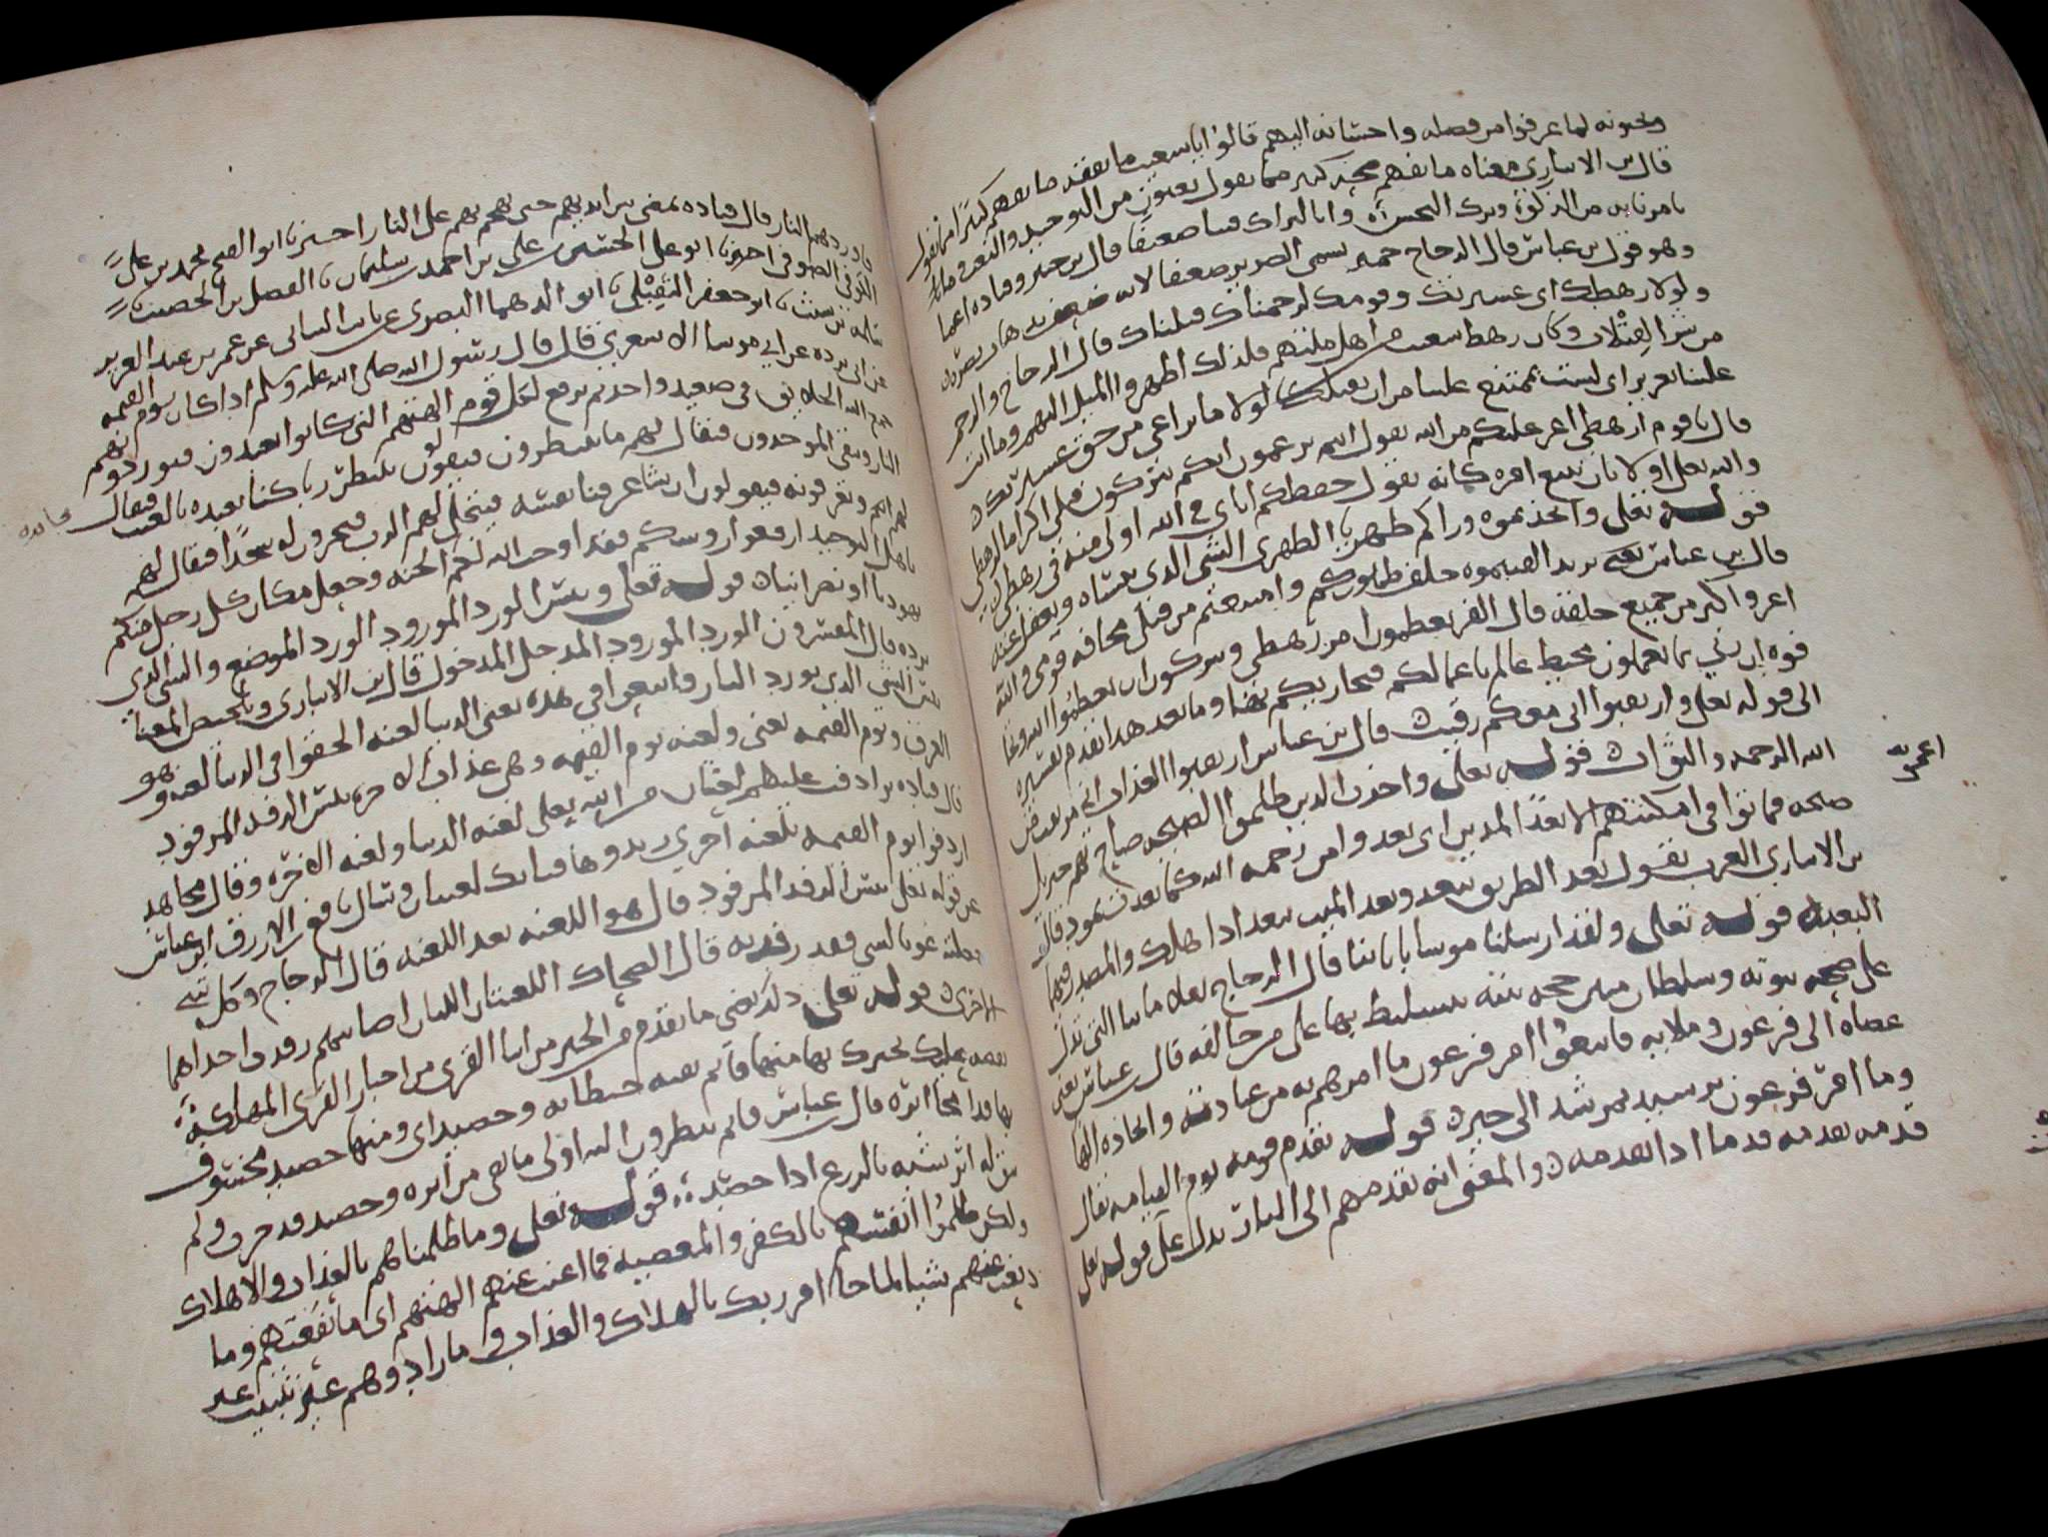 ويحبونه لما عرفوا من فضله واحسانه اليهم قالوا يا شعيب ما نفقه ما نفهم كثيرا مما تقول
قال بن الانباري معناه ما نفهم صحة كثير مما تقول يعنون من التوحيد والبعث وما
تامرنا به من الزكوة وترك البخس وانا لنراك فينا ضعيفا قال بن جبير وقتاده اعما
وهو قول بن عباس قال الزجاج حمير تسمي الضرير ضعيفا لانه ضعف بذهاب بصره
ولولا رهطك اي عشيرتك وقومك لرجمناك قتلناك قال الزجاج والرجم
من شر القتلات وكان رهط شعيب من اهل ملتهم فلذلك اظهروا الميل اليهم وما انت
علينا بعزيز اي لست بممتنع علينا من ان نقتلك لولا ما نراعي من حق عشيرتك
قال يا قوم ارهطي اعز عليكم من الله يقول انتم تزعمون انكم تتركون قتلي اكراما لرهطي
والله تعلى اولا بان يتبع امره كانه يقول حفظكم اياي في الله اولى منه في رهطي
قوله تعلى واتخذتموه وراكم ظهريا الظهري الشي الذي تنساه وتغفل عنه
قال بن عباس يريد القيتموه خلف ظهوركم وامتنعتم من قتلي مخافة قومي والله
اعز واكبر من جميع خلقه قال الفرا تعظمون امر رهطي وتتركون ان تعظموا الله وتخا
فوه ان ربي بما تعملون محيط عالم باعمالكم فيجازيكم بها وما بعد هذا تقدم تفسيره
الى قوله تعلى وارتقبوا اني معكم رقيب قال بن عباس ارتقبوا العذاب اني مرتقب من
الله الرحمه والثواب قوله تعلى واخذت الذين ظلموا الصيحه صاح بهم جبريل
صيحه فماتوا في امكنتهم الا بعدا لمدين اي بعدوا من رحمه الله كما بعدت ثمود قال
بن الانباري العرب تقول بعد الطريق يبعد وبعد الميت يبعد اذا هلك والمصدر فيهما
البعد قوله تعلى ولقد ارسلنا موسا باياتنا قال الزجاج بعلاماتنا التي تدل
على صحه نبوته وسلطان مبين حجه بينه يتسلط بها على من خالفه قال عباس يعني
عصاه الى فرعون وملايه فاتبعوا امر فرعون ما امرهم به من عبادته واتخاذه الها
وما امر فرعون برشيد بمرشد الى خير قوله يقدم قومه يوم القيامه يقال
قدمه يقدمه قدما اذا تقدمه والمعنى انه يقدمهم الى النار يدل على قوله تعلى
فاوردهم النار قال قتاده يمضي بين ايديهم حتى يهجم بهم على النار اخبرنا ابو الفتح محمد بن علي
الكوفي الصوفي اخبرنا ابو علي الحسين بن علي بن احمد بن سليمان نا الفضل بن الخصيب نا
سلمه بن شبيب نا ابو جعفر النفيلي نا ابو الدهما البصري عن ثابت البناني عن عمر بن عبد العزيز
عن ابي برده عن ابي موسا الاشعري قال قال رسول الله صلى الله عليه وسلم اذا كان يوم القيمه
جمع الله الخلايق في صعيد واحد ثم يرفع لكل قوم الهتهم التي كانوا يعبدون فيوردونهم
النار ويبقى الموحدون فيقال لهم ما تنتظرون فيقولون ننتظر ربا كنا نعبده بالغيب فيقال
لهم اتعرفونه فيقولون ان شا عرفنا نفسه فيتجلى لهم الرب فيخرون له سجدا فيقال لهم
يا اهل التوحيد ارفعوا روسكم فقد اوجب الله لكم الجنه وجعل مكان كل رجل منكم
يهوديا او نصرانيا قوله تعلى وبئس الورد المورود الورد الموضع والشي الذي
ترده قال المفسرون الورد المورود المدخل المدخول قال بن الانباري وتلخيص المعنا
بئس الشي الذي يورد النار واتبعوا في هذه يعني الدنيا لعنه الحقوا في الدنيا لعنه وهو
الغرق ويوم القيمه يعني ولعنه يوم القيمه وهي عذاب الاخره بئس الرفد المرفود
قال قتاده ترادفت عليهم لعنتان من الله تعلى لعنه الدنيا ولعنه الاخره وقال مجاهد
اردفوا يوم القيمه بلعنه اخرى زيدوها فتانك لعنتان وسال نافع بن الازرق ابن عباس
عن قوله تعلى بئس الرفد المرفود قال هو اللعنه بعد اللعنه قال الزجاج وكل شي
جعلته عونا لشي فقد رفدته قال الضحاك اللعنتان اللتان اصابتهم رفدت احداهما
الاخرى قوله تعلى ذلك يعني ما تقدم من الخبر من انبا القرى من اخبار القرى المهلكه
نقصه عليك نخبرك بها منها قايم بقيه حيطانه وحصيد اي ومنها حصيد مخسوف
بها قد امحا اثره قال عباس قايم ينظرون اليه اولى ما بقي من اثره وحصيد قد خرب ولم
يبق له اثر شبه بالزرع اذا حصد قوله تعلى وما ظلمناهم بالعذاب والاهلاك
ولكن ظلموا انفسهم بالكفر والمعصيه فما اغنت عنهم الهتهم اي ما نفعتهم وما
دفعت عنهم شيا لما جا امر ربك بالهلاك والعذاب وما زادوهم غير تتبيب غير